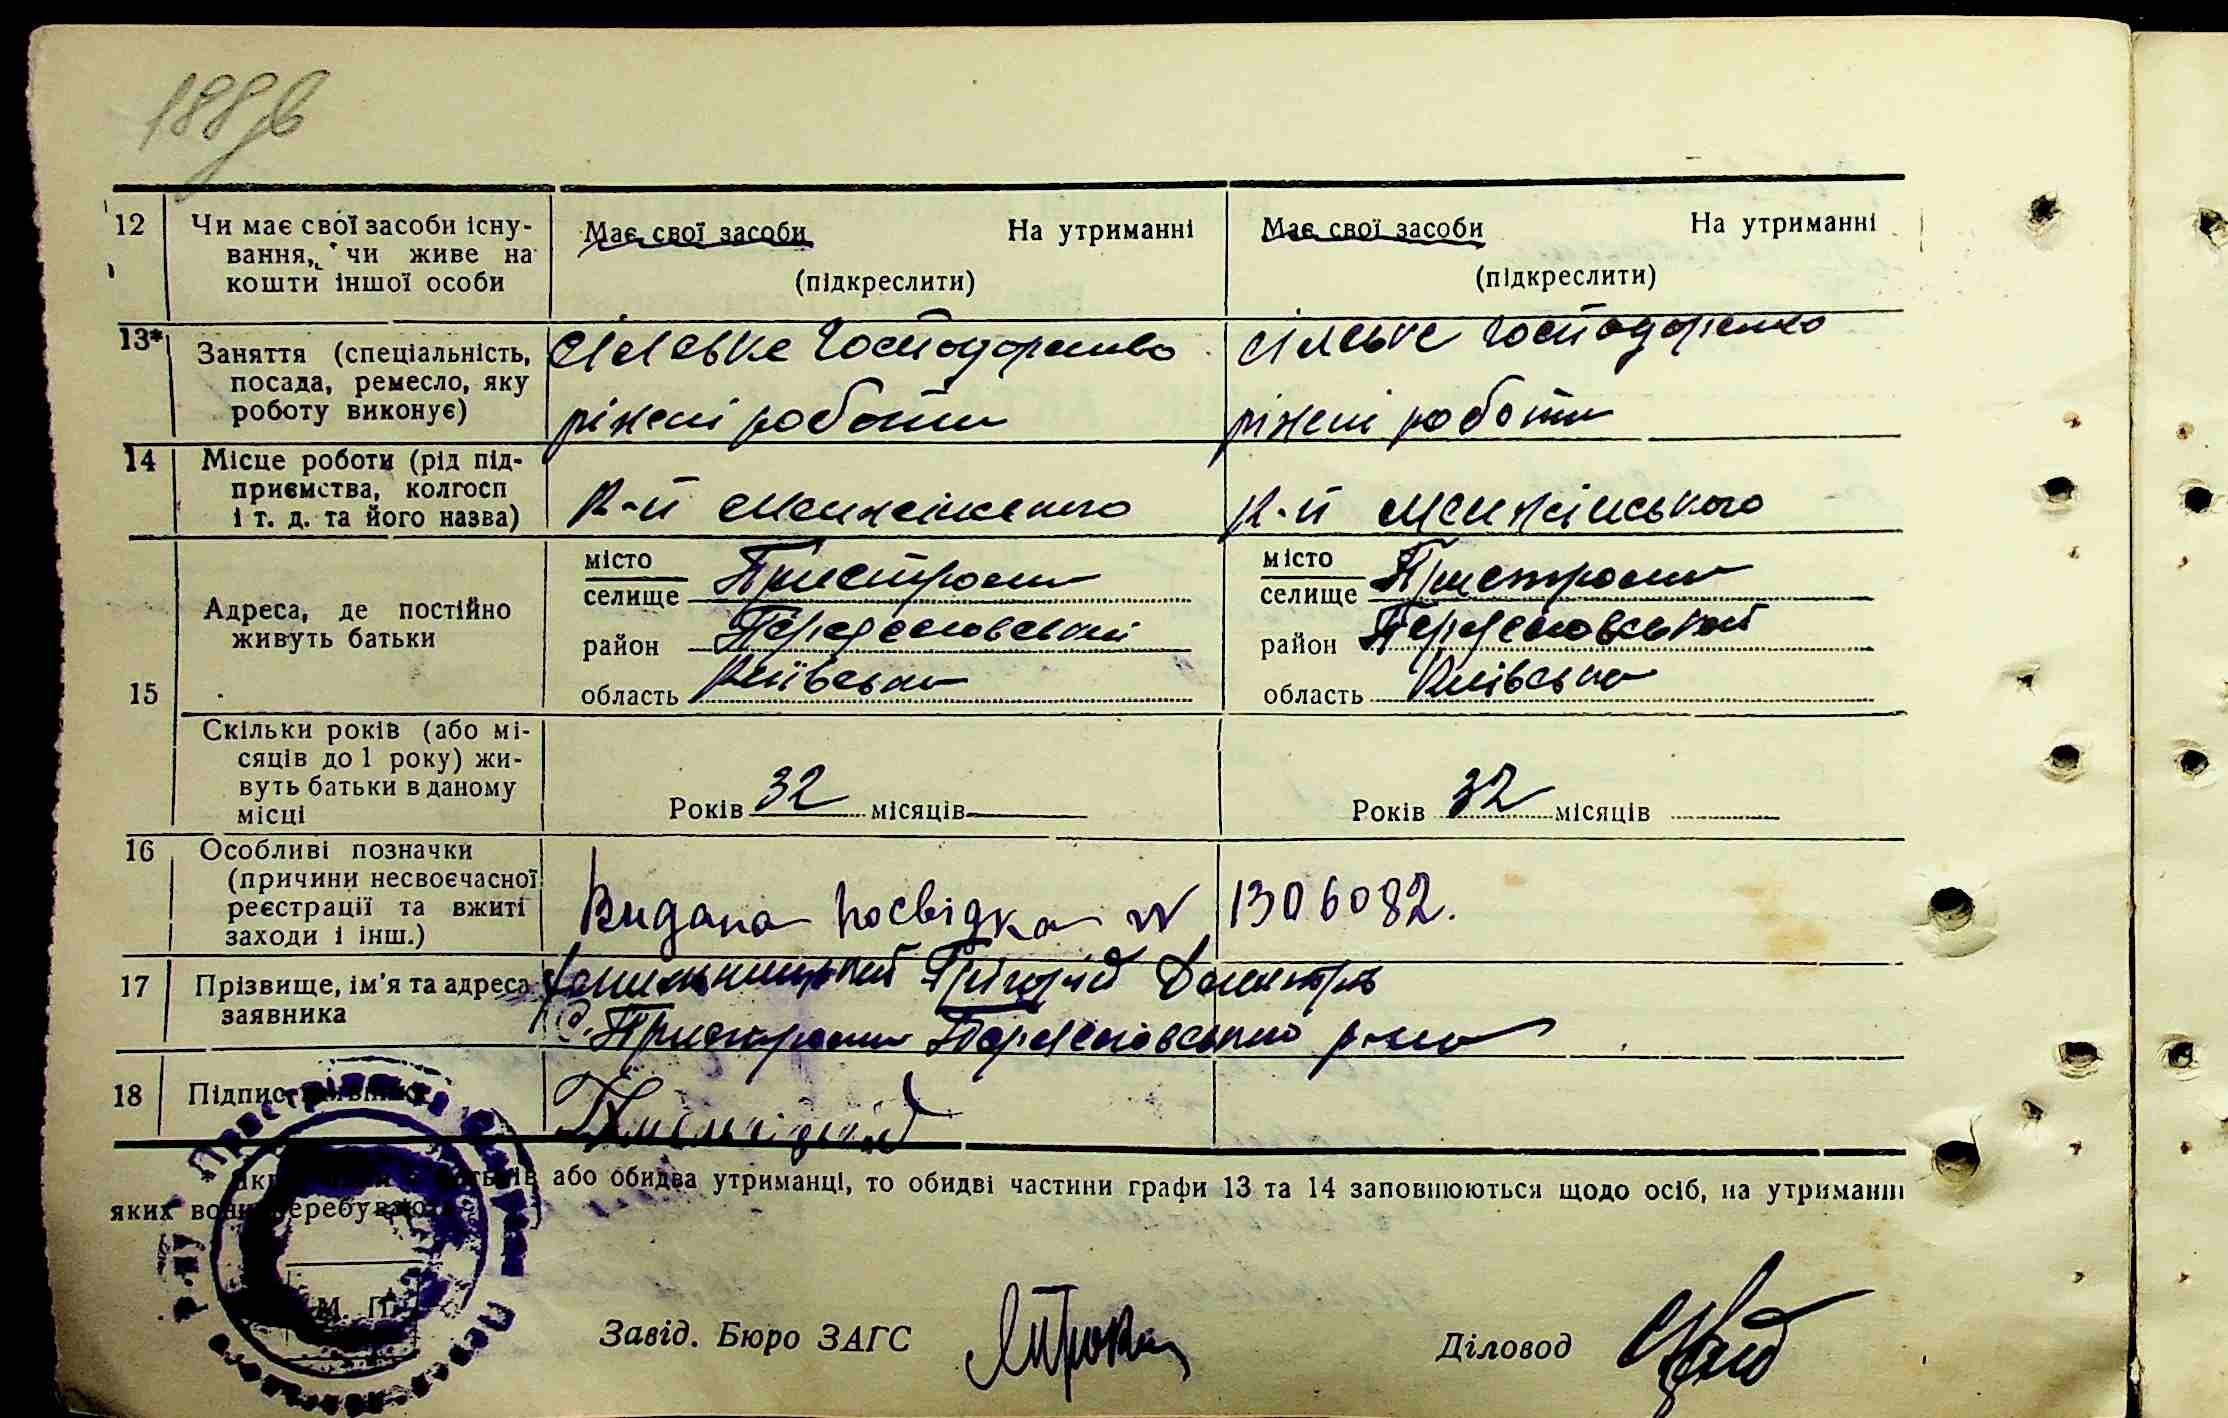 188зв
12 Чи має свої засоби існу-
вання, чи живе на
кошти іншої особи
Має свої засоби На утриманні
(підкреслити)
Має свої засоби На утриманні
(підкреслити)
13* Заняття (спеціальність,
посада, ремесло, яку
роботу виконує)
сільське господарство
ріжені роботи
сільське господарство
ріжені роботи
14 Місце роботи (рід під-
приємства, колгосп
і т. д. та його назва)
к-п Менжінського
к-п Менжінського
15 Адреса, де постійно
живуть батьки
місто
селище Пристроми
район Переяславський
область Київська
місто
селище Пристроми
район Переяславський
область Київська
Скільки років (або мі-
сяців до 1 року) жи-
вуть батьки в даному
місці
Років 32 місяців
Років 32 місяців
16 Особливі позначки
(причини несвоєчасної
реєстрації та вжиті
заходи і інш.)
Видана посвідка N 1306082.
17 Прізвище, ім'я та адреса
заявника
Григорій
с. Пристроми Переяславського р-на
18 Підпис заявника
* Якщо або обидва утриманці, то обидві частини графи 13 та 14 заповнюються щодо осіб, на утриманні
яких вони перебувають.
М. П.
Завід. Бюро ЗАГС
Діловод